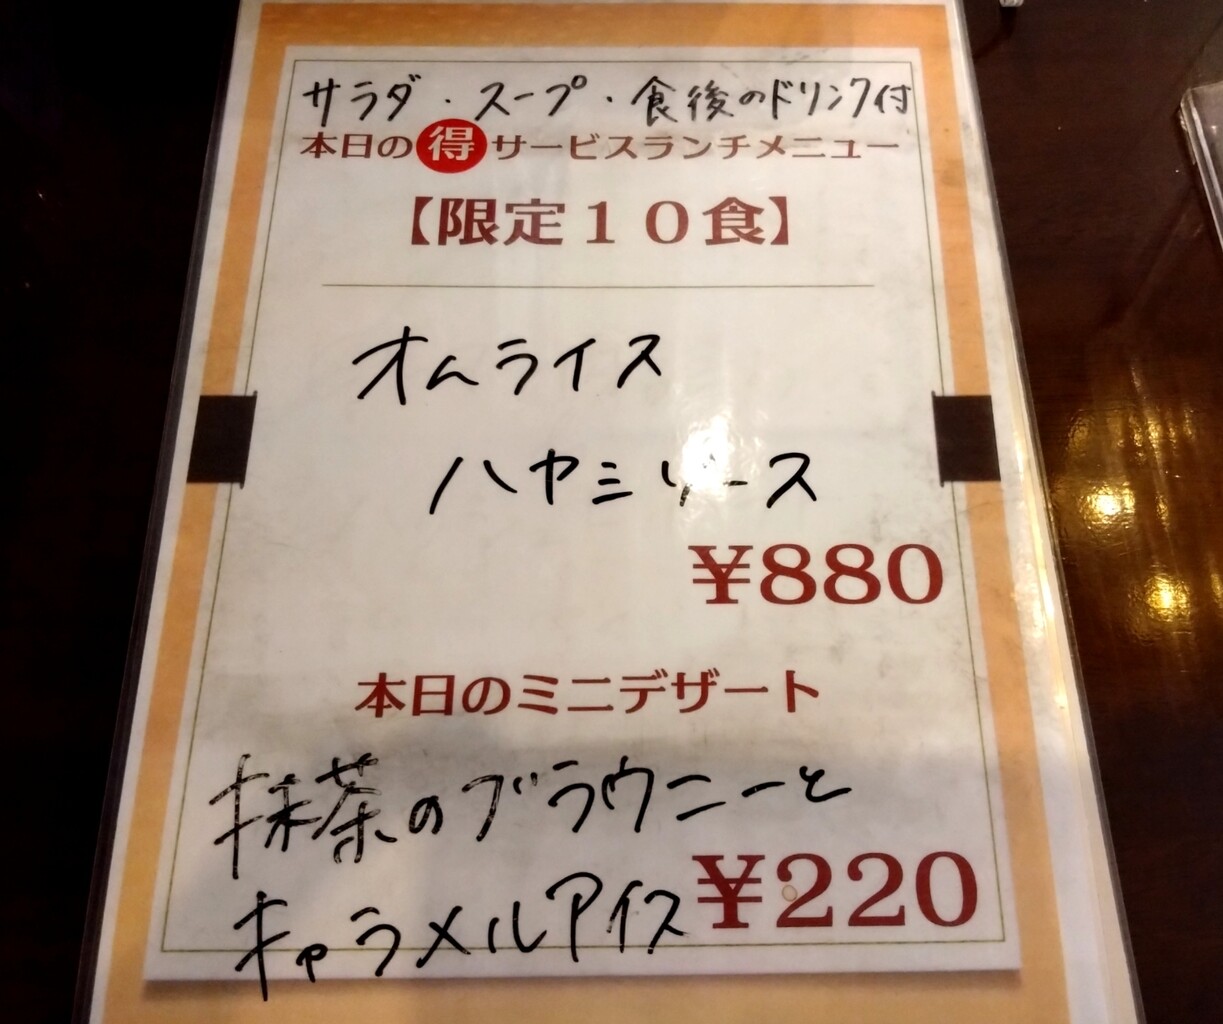 サラダ・スープ・食後のドリンク付
本日の得サービスランチメニュー
【限定10食】
オムライス
ハヤシソース
¥880
本日のミニデザート
抹茶のブラウニーと
キャラメルアイス ¥220